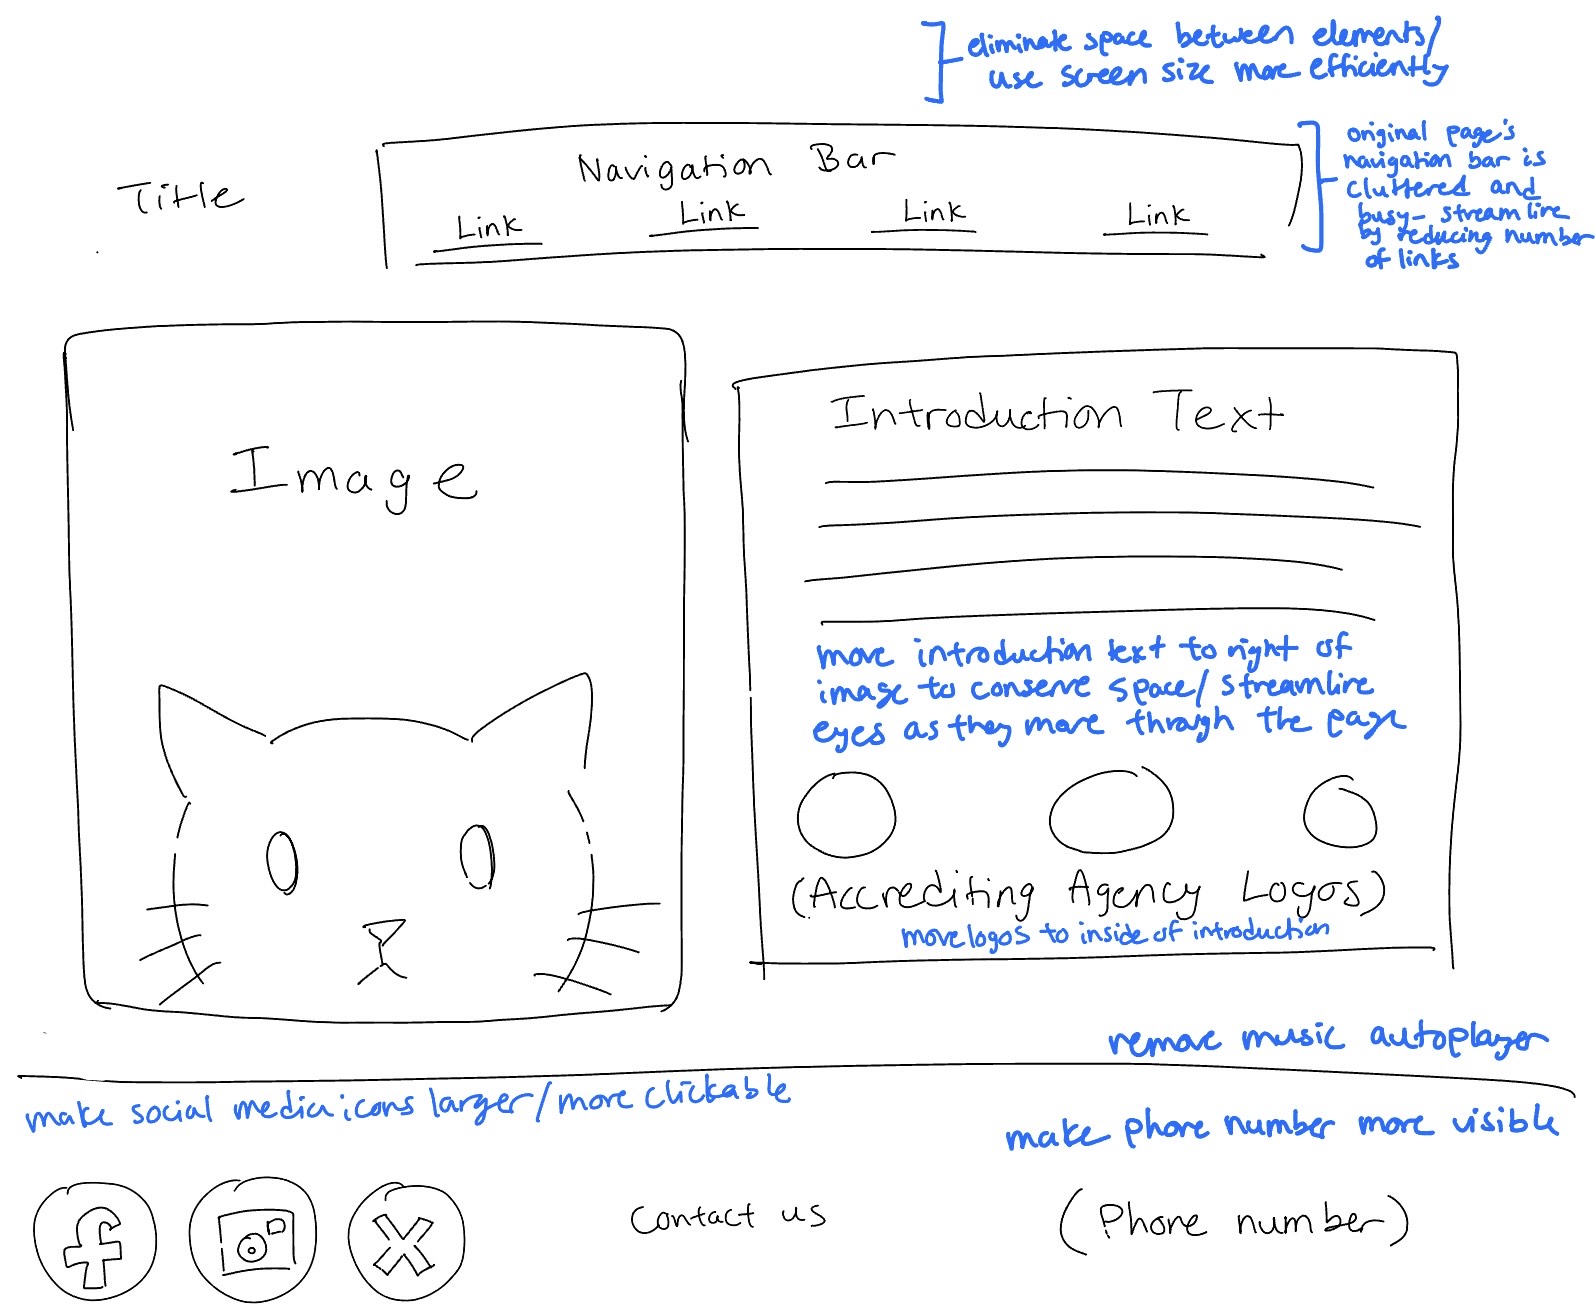 eliminate space between elements/
use screen size more efficiently
Title
Navigation Bar
Link Link Link Link
original page's
navigation bar is
cluttered and
busy- streamline
by reducing number
of links
Image
Introduction Text
move introduction text to right of
image to conserve space/ streamline
eyes as they move through the page
(Accrediting Agency Logos)
move logos to inside of introduction
remove music autoplayer
make social media icons larger/more clickable
make phone number more visible
f
X
Contact us
(Phone number)